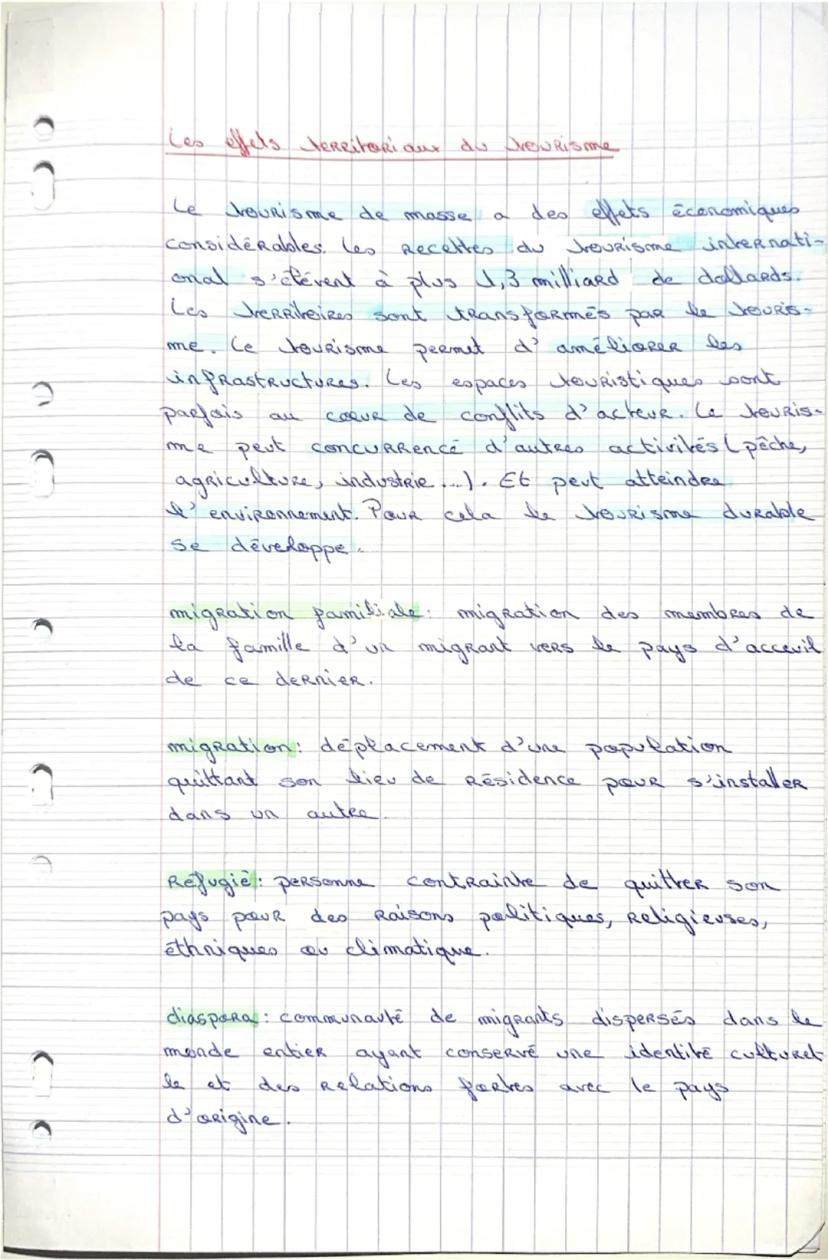 Les effets territoriaux du tourisme
Le tourisme de masse a des effets économiques
considérables. Les recettes du tourisme internati-
onal s'élèvent à plus 1,3 milliard de dollards.
Les territoires sont transformés par le touris-
me. Le tourisme permet d'améliorer les
infrastructures. Les espaces touristiques sont
parfois au coeur de conflits d'acteur. Le touris-
me peut concurrencé d'autres activités (pêche,
agriculture, industrie...). Et peut atteindre
l'environnement. Pour cela le tourisme durable
se développe.
migration familiale : migration des membres de
la famille d'un migrant vers le pays d'acceuil
de ce dernier.
migration : déplacement d'une population
quittant son lieu de résidence pour s'installer
dans un autre.
Réfugié : personne contrainte de quitter son
pays pour des raisons politiques, religieuses,
éthniques ou climatique.
diaspora : communauté de migrants dispersés dans le
monde entier ayant conservé une identité culturel
le et des relations fortes avec le pays
d'origine.